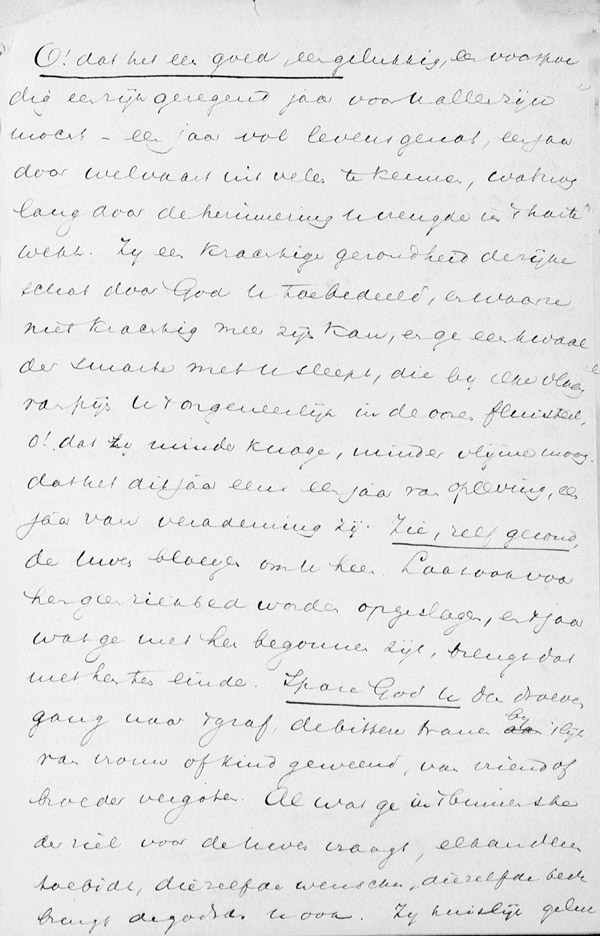 O! dat het een goed, een gelukkig, een voorspoe
dig een rijk gezegend jaar voor U allen zijn
mocht – een jaar vol levensgenot, een jaar
door welvaart uit velen te kennen, wat nog
lang door de herinnering U vreugde in 't harte
wekk. Zy een krachtige gezondheid de rijke
schat door God U toebedeeld, en waar ze
niet krachtig mee zijn kan, en ge een kwaal
der smarte met U sleept, die by elke vlaag
van pijn U 't ongeneeslijk in de ooren fluistert,
o! dat zy minder knage, minder vlijme moog.
dat het dit jaar eens een jaar van opleving, een
jaar van verademing zij. Zie, zelf gezond,
de Uwen bloeyen om U heen. Laat ook voor
hen geen ziekbed worden opgeslagen, en 't jaar
wat ge met hen begonnen zijt, brengt dat
met hen ten einde. Spare God U den droeven
gang naar 't graf, de bittere tranen by 't lijk
van vrouw of kind geweend, van vriend of
broeder vergoten. Al wat ge in 't binnenste
der ziel voor de Uwen vraagt, elkanderen
toebidt, diezelfde wenschen, diezelfde bede
brengt de godsd. U ook. Zy huislijk geluk